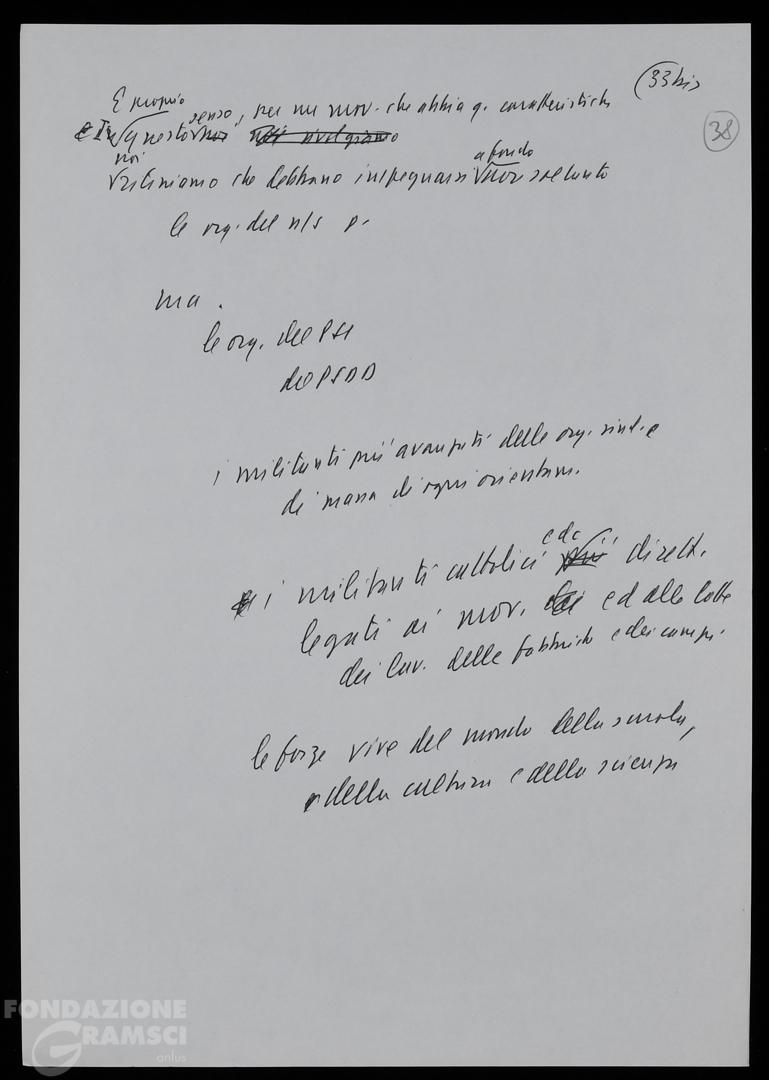 33 bis
38
E proprio
In questo senso, per un mov. che abbia q. caratteristiche
noi rivolgiamo
noi
riteniamo che debbano impegnarsi a fondo non soltanto
le org. del n/s p.
ma.
le org. del PSI
del PSDI
i militanti più avanzati delle org. sind. e
di massa di ogni orientam.
i militanti cattolici e dc dirett.
legati ai mov. ed alle lotte
dei lav. delle fabbriche e dei campi.
le forze vive del mondo della scuola,
della cultura e della scienza
FONDAZIONE
GRAMSCI
onlus